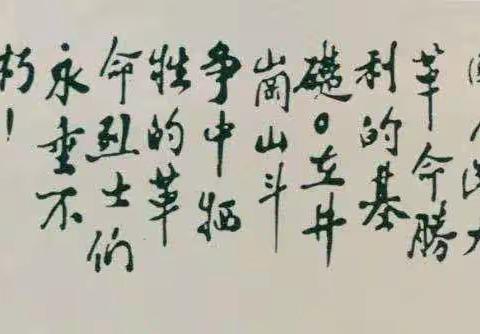 革命勝
利的基
礎。在井
崗山斗
争中牺
牲的革
命烈士们
永垂不
朽!